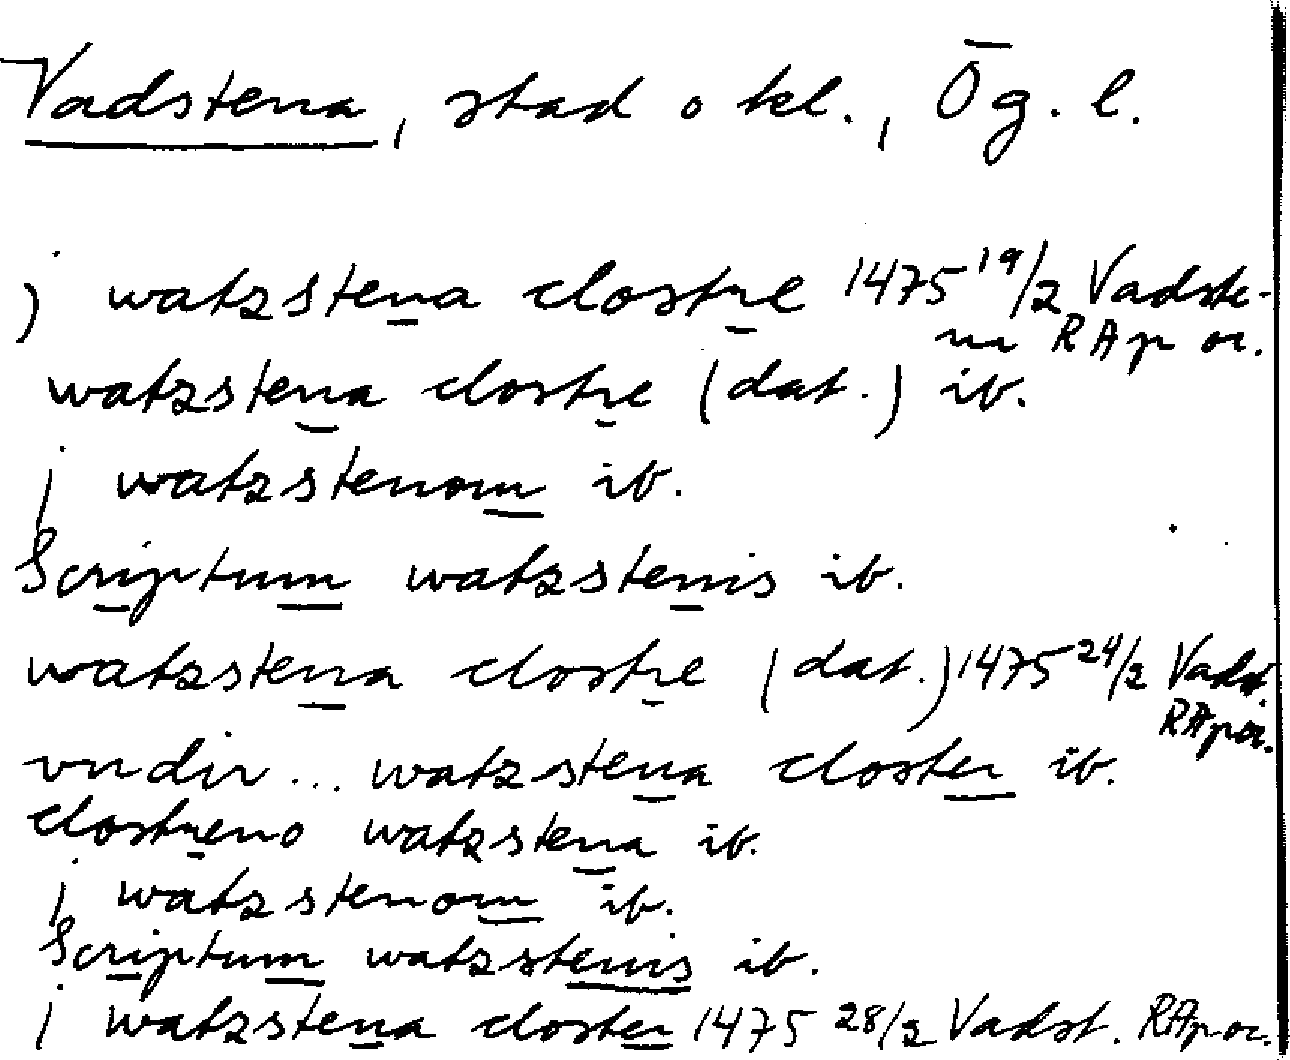 Vadstena, stad o kl., Ög. l.
j watzstena clostre 1475 19/2 Vadste-
na RAp or.
watzstena clostre (dat.) ib.
j watzstenom ib.
Scriptum watzstenis ib.
watzstena clostre (dat.) 1475 24/2 Vadst.
RAp or.
vndir... watzstena closter ib.
clostreno watzstena ib.
j watzstenom ib.
Scriptum watzstenis ib.
j watzstena closter 1475 28/2 Vadst. RAp or.